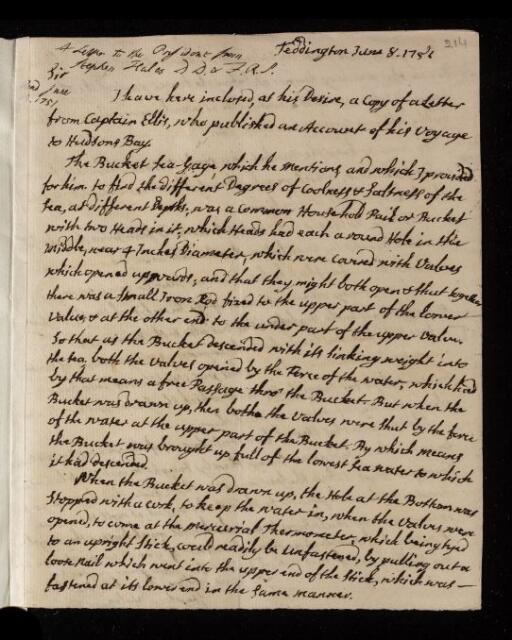 A Letter to the President from
Stephen Hales D D & F.R.S.
Teddington June 8. 1751
214
Sir
June
1751
I have here inclosed, at his Desire, a Copy of a Letter
from Captain Ellis, who published an Account of his Voyage
to Hudsons Bay.
The Bucket sea-gage which he mentions, and which I provided
for him to find the different Degrees of Coolness & Saltness of the
Sea, at different Depths, was a Common Houshold Pail or Bucket
with two Heads in it, which Heads had each a round Hole in the
middle, near 4 Inches Diameter, which were Covered with Valves
which opened upwards; and that they might both open & shut together
there was a small Iron Rod fixed to the upper part of the lower
Valve, & at the other end to the under part of the upper Valve.
So that as the Bucket descended with its sinking weight into
the sea, both the Valves opened by the Force of the water, which had
by that means a free Passage thro' the Bucket. But when the
Bucket was drawn up, then bothe the Valves were shut by the force
of the water at the upper part of the Bucket. By which means
the Bucket was brought up full of the lowest Sea water to which
it had descended.
When the Bucket was drawn up, the Hole at the Bottom was
Stopped with a Cork, to keep the water in, when the Valves were
opend, to come at the mercurial Thermometer, which being tyed
to an upright Stick, could readily be Unfastened, by pulling out a
loose Nail which went into the upper end of the Stick, which was -
fastened at its lower end in the Same manner.